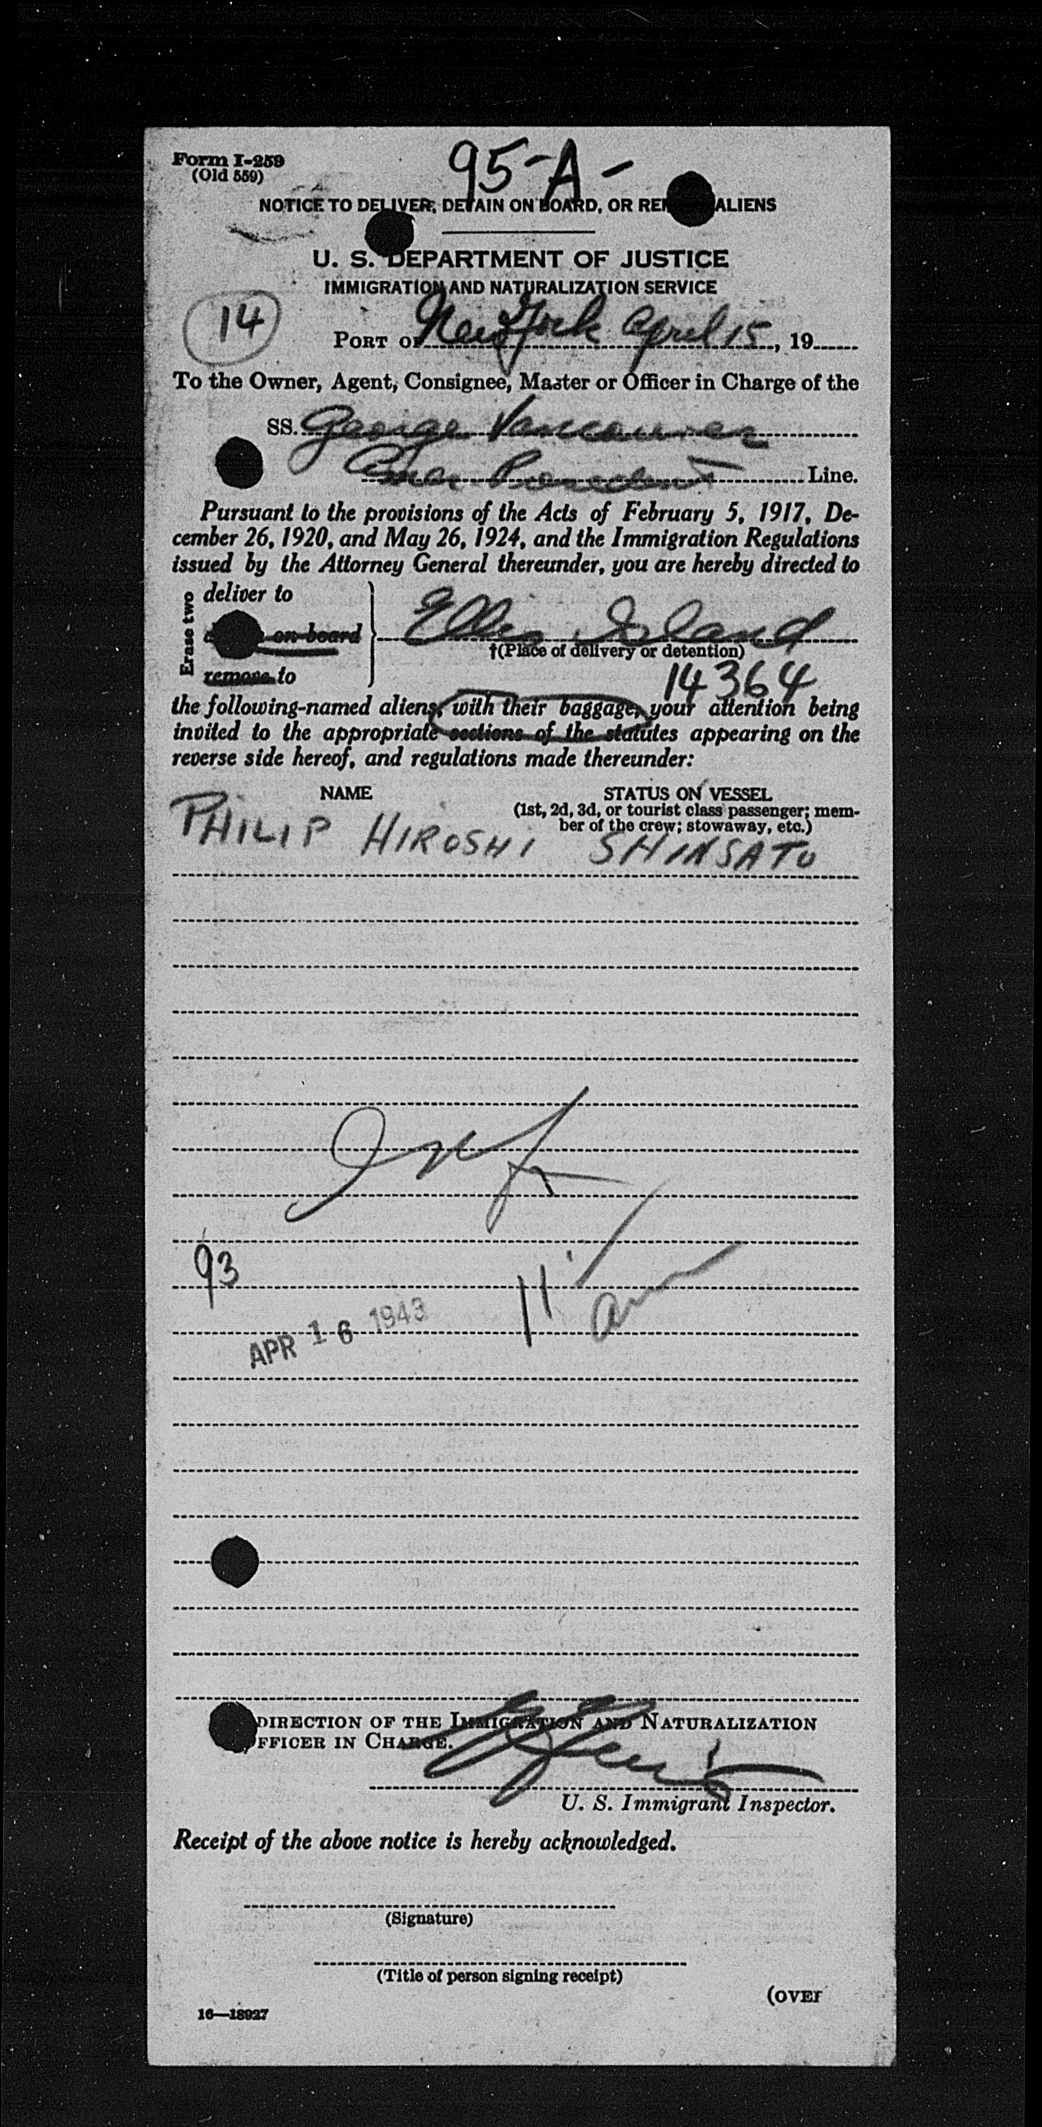 95-A-
Form I-259
(Old 559)
NOTICE TO DELIVER, DETAIN ON BOARD, OR ALIENS
U. S. DEPARTMENT OF JUSTICE
IMMIGRATION AND NATURALIZATION SERVICE
14
PORT OF New York April 15, 19
To the Owner, Agent, Consignee, Master or Officer in Charge of the
SS. George Vancouver
Amer President Line.
Pursuant to the provisions of the Acts of February 5, 1917, De-
cember 26, 1920, and May 26, 1924, and the Immigration Regulations
issued by the Attorney General thereunder, you are hereby directed to
Erase two
deliver to
on board
remove to
Ellis Island
†(Place of delivery or detention)
14364
the following-named aliens, with their baggage, your attention being
invited to the appropriate sections of the statutes appearing on the
reverse side hereof, and regulations made thereunder:
NAME STATUS ON VESSEL
(1st, 2d, 3d, or tourist class passenger; mem-
ber of the crew; stowaway, etc.)
PHILIP HIROSHI SHINSATO
93
11
APR 16 1943
DIRECTION OF THE IMMIGRATION AND NATURALIZATION
OFFICER IN CHARGE.
U. S. Immigrant Inspector.
Receipt of the above notice is hereby acknowledged.
(Signature)
(Title of person signing receipt)
(OVER
16—18927